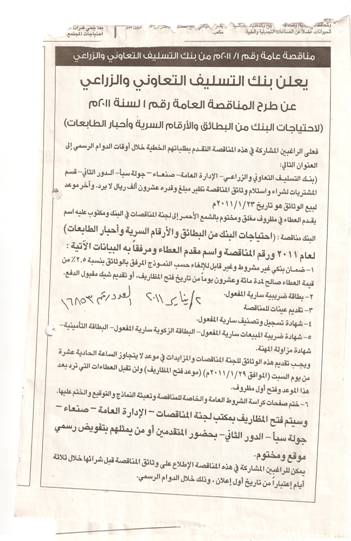 مناقصة عامة رقم ٢٠١١/١م من بنك التسليف التعاوني والزراعي
يعلن بنك التسليف التعاوني والزراعي
عن طرح المناقصة العامة رقم ١ لسنة ٢٠١١م
(لاحتياجات البنك من البطائق والأرقام السرية وأحبار الطابعات)
فعلى الراغبين المشاركة في هذه المناقصة التقدم بطلباتهم الخطية خلال أوقات الدوام الرسمي إلى
العنوان التالي:
(بنك التسليف التعاوني والزراعي - الإدارة العامة - صنعاء - جولة سبأ - الدور الثاني - قسم
المشتريات لشراء واستلام وثائق المناقصة نظير مبلغ وقدره عشرون ألف ريال لا يرد. وآخر موعد
لبيع الوثائق هو تاريخ ٢٠١١/١/٢٣م)
يقدم العطاء في مظروف مغلق ومختوم بالشمع الأحمر إلى لجنة المناقصات في البنك ومكتوب عليه اسم
البنك مناقصة: (احتياجات البنك من البطائق والأرقام السرية وأحبار الطابعات)
لعام ٢٠١١ ورقم المناقصة واسم مقدم العطاء ومرفقاً به البيانات الآتية:
١- ضمان بنكي غير مشروط وغير قابل للإلغاء حسب النموذج المرفق بالوثائق بنسبة ٢,٥٪ من
قيمة العطاء صالح لمدة مائة وعشرون يوماً من تاريخ فتح المظاريف، أو تقديم شيك مقبول الدفع.
٢- بطاقة ضريبية سارية المفعول.
٣- تقديم عينات للمناقصة
٤- شهادة تسجيل وتصنيف سارية المفعول.
٢/يناير ٢٠١١ العدد رقم ١٦٨٥٣
٥- شهادة ضريبة المبيعات سارية المفعول - البطاقة الزكوية سارية المفعول - البطاقة التأمينية -
شهادة مزاولة المهنة.
ويجب تقديم هذه الوثائق للجنة المناقصات والمزايدات في موعد لا يتجاوز الساعة الحادية عشرة
من يوم السبت (الموافق ٢٠١١/١/٢٩م) (موعد فتح المظاريف) ولن تقبل العطاءات التي ترد بعد
هذا الموعد وفتح أول مظروف.
٦- ختم صفحات كراسة الشروط العامة والخاصة للمناقصة وتعبئة النماذج والتوقيع والختم عليها.
وسيتم فتح المظاريف بمكتب لجنة المناقصات - الإدارة العامة - صنعاء -
جولة سبأ - الدور الثاني - بحضور المتقدمين أو من يمثلهم بتفويض رسمي
موقع ومختوم.
يمكن للراغبين المشاركة في هذه المناقصة الإطلاع على وثائق المناقصة قبل شرائها خلال ثلاثة
أيام إعتباراً من تاريخ أول إعلان. وذلك خلال الدوام الرسمي.